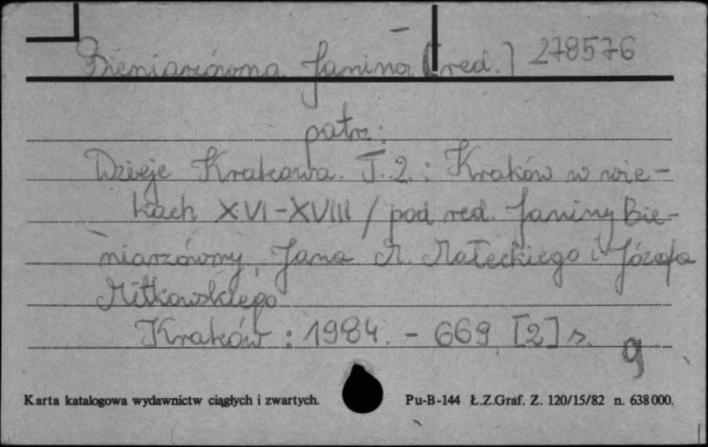 Bieniarzówna Janina [red.] 278576
patrz:
Dzieje Krakowa. T. 2. : Kraków w wie-
kach XVI-XVIII / pod red. Janiny Bie-
niarzówny, Jana M. Małeckiego i Józefa
Mitkowskiego
Kraków : 1984. - 669 [2] s.
g
Karta katalogowa wydawnictw ciągłych i zwartych. Pu-B-144 Ł.Z.Graf. Z. 120/15/82 n. 638000.